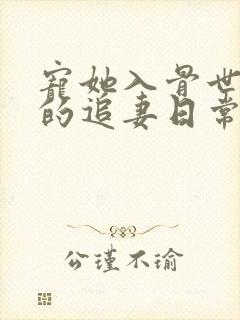 寵她入骨世
的追妻日常
公瑾不瑜